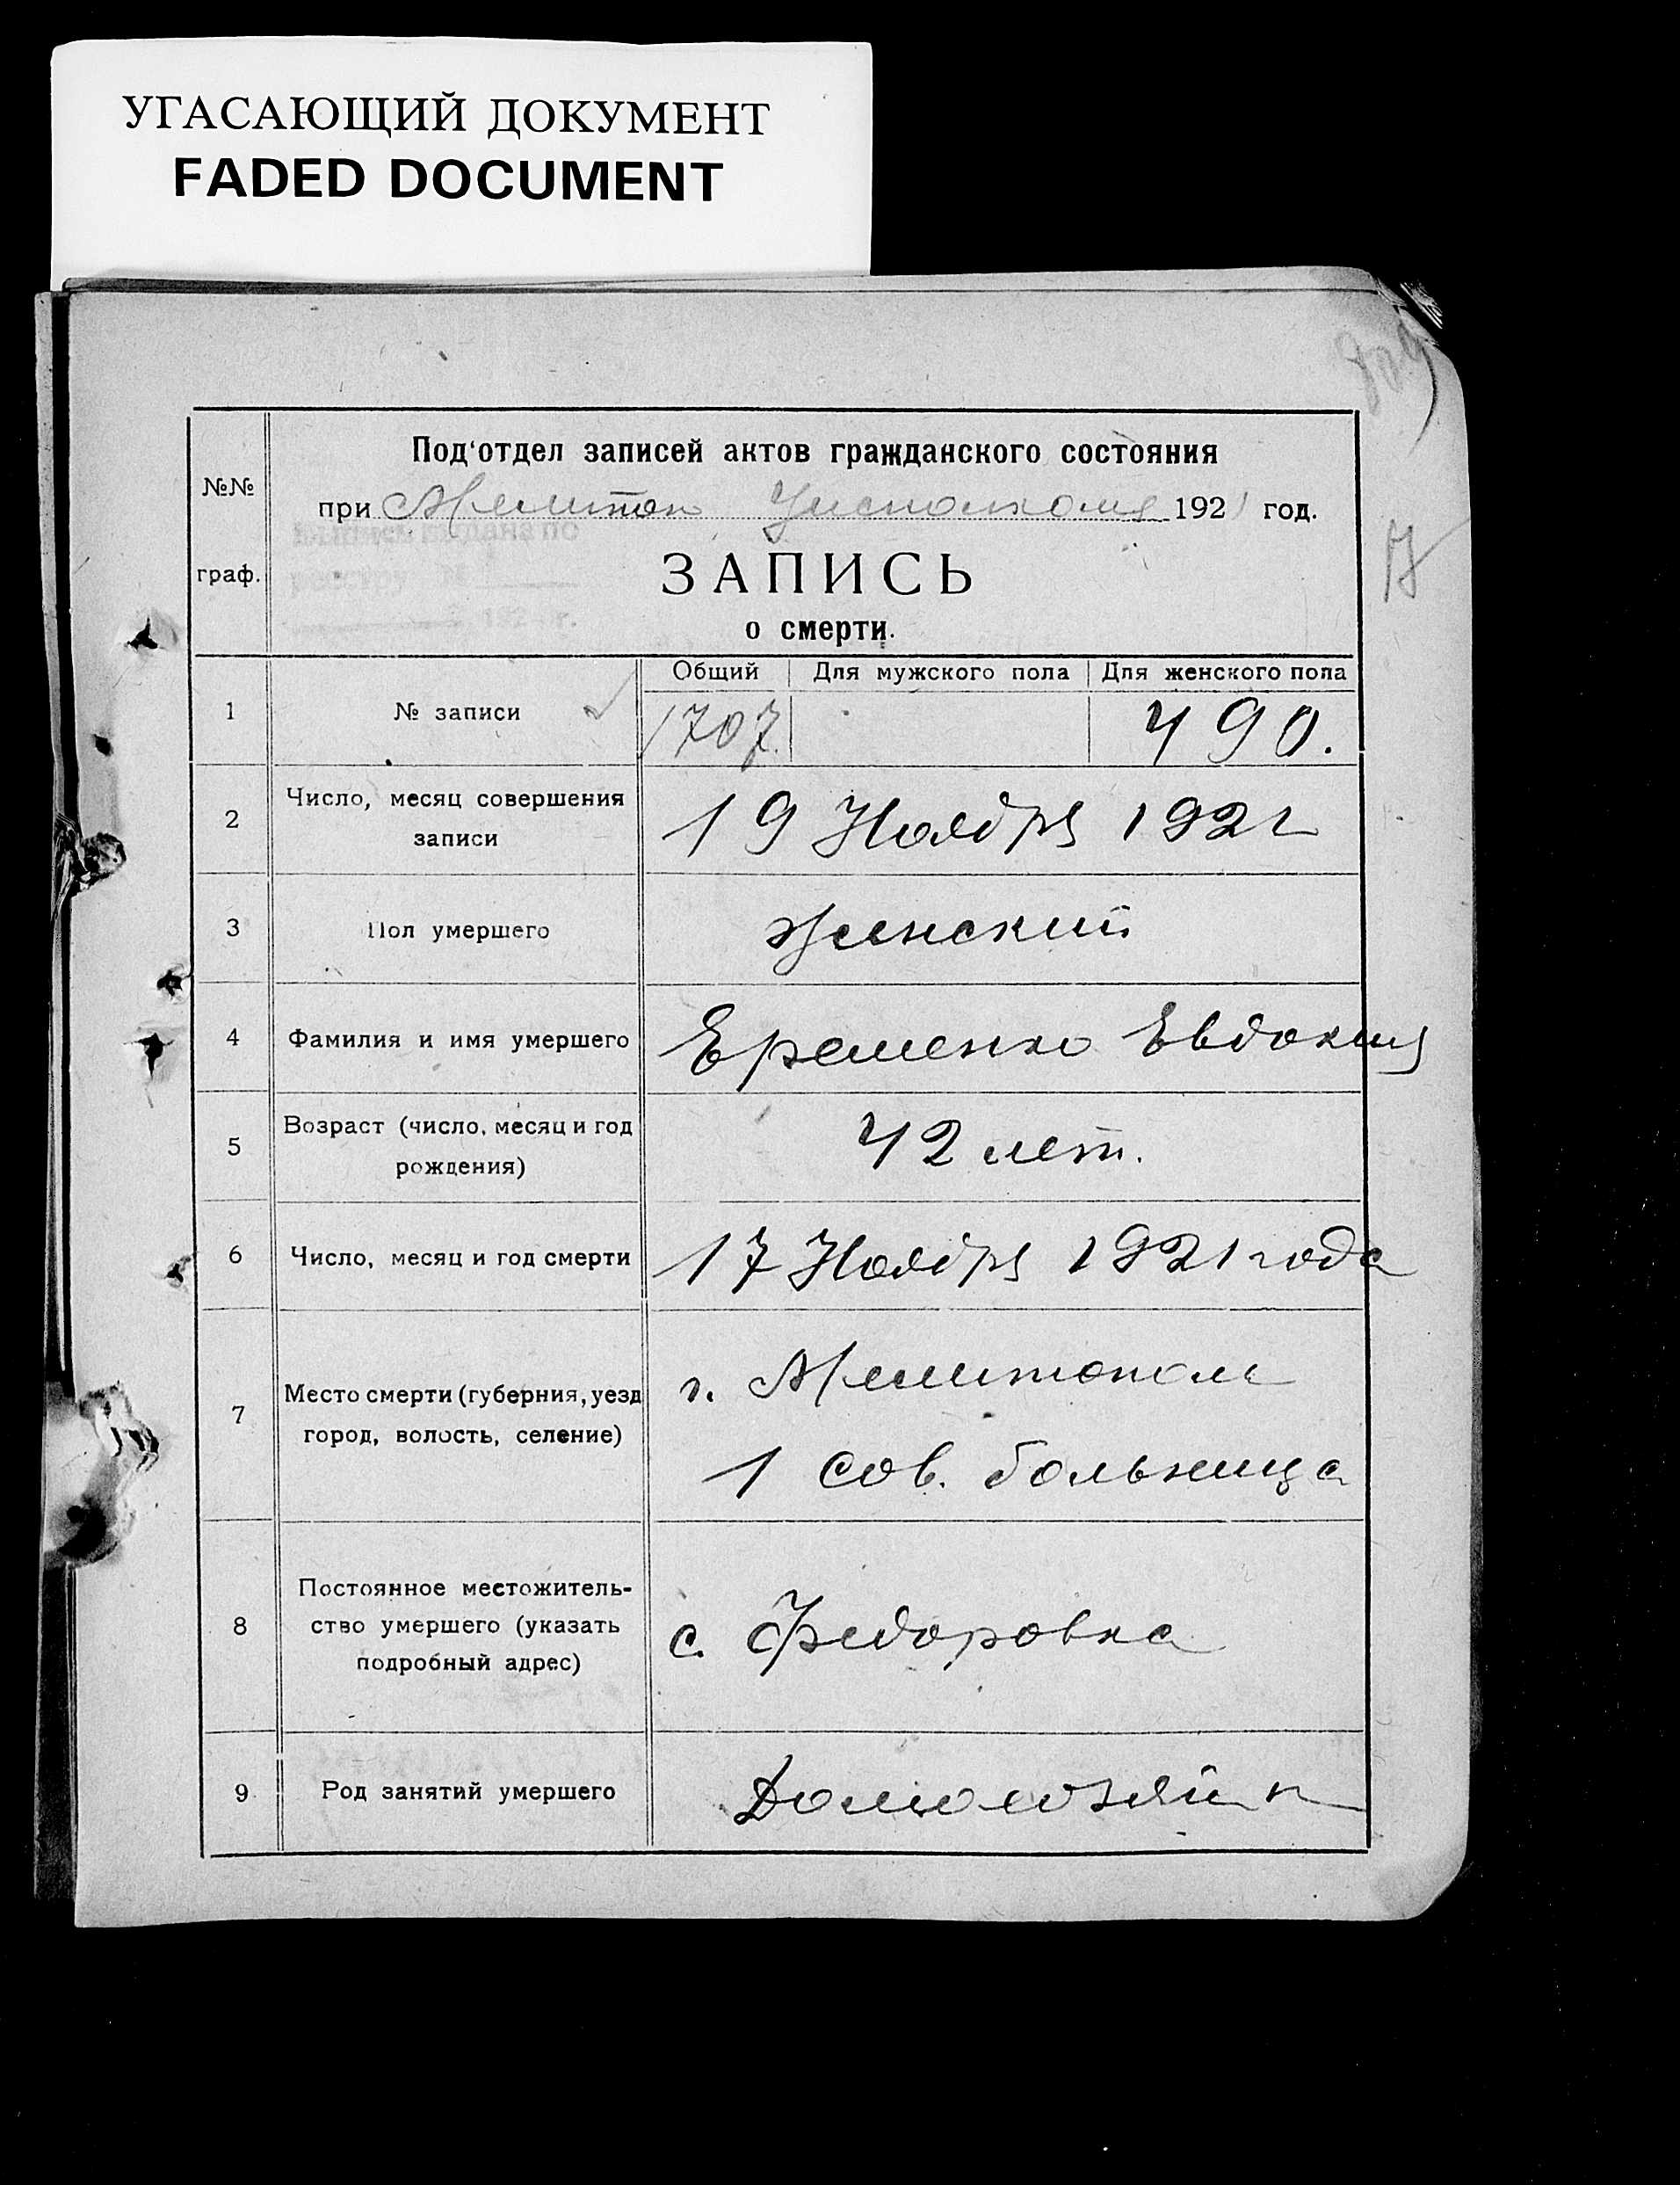 УГАСАЮЩИЙ ДОКУМЕНТ
FADED DOCUMENT
Под'отдел записей актов гражданского состояния
№№
при Мелитоп Уисполкоме 1921 год.
ЗАПИСЬ
граф.
о смерти.
Общий Для мужского пола Для женского пола
1 № записи 1707. 490.
2 Число, месяц совершения
записи
19 Ноября 1921
3 Пол умершего женский
4 Фамилия и имя умершего Еременко Евдокия
5 Возраст (число, месяц и год
рождения)
42 лет.
6 Число, месяц и год смерти 17 Ноября 1921 года
7 Место смерти (губерния, уезд
город, волость, селение)
г. Мелитополь
1 сов. больница
8 Постоянное местожитель-
ство умершего (указать
подробный адрес)
с. Федоровка
9 Род занятий умершего Домохозяйк